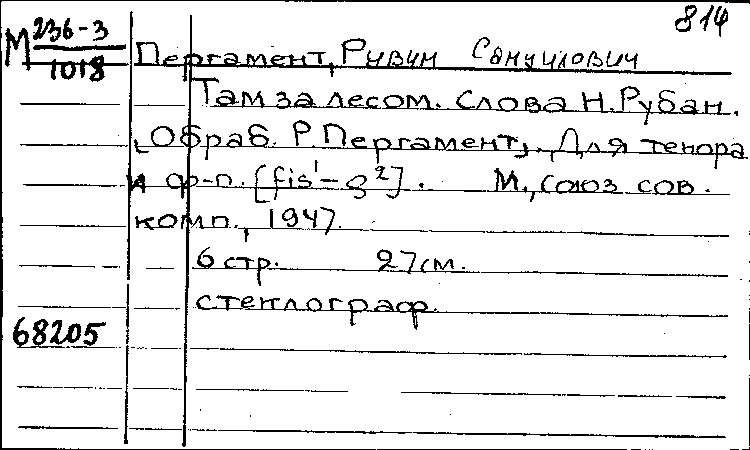 814
М 236-3
1018
Пергамент, Рувим Самуилович
Там за лесом. Слова Н. Рубан.
[Обраб. Р. Пергамент]. Для тенора
и ф-п. [fis¹-g²]. М., Союз сов.
комп., 1947.
6 стр. 27 см.
стеклограф.
68205